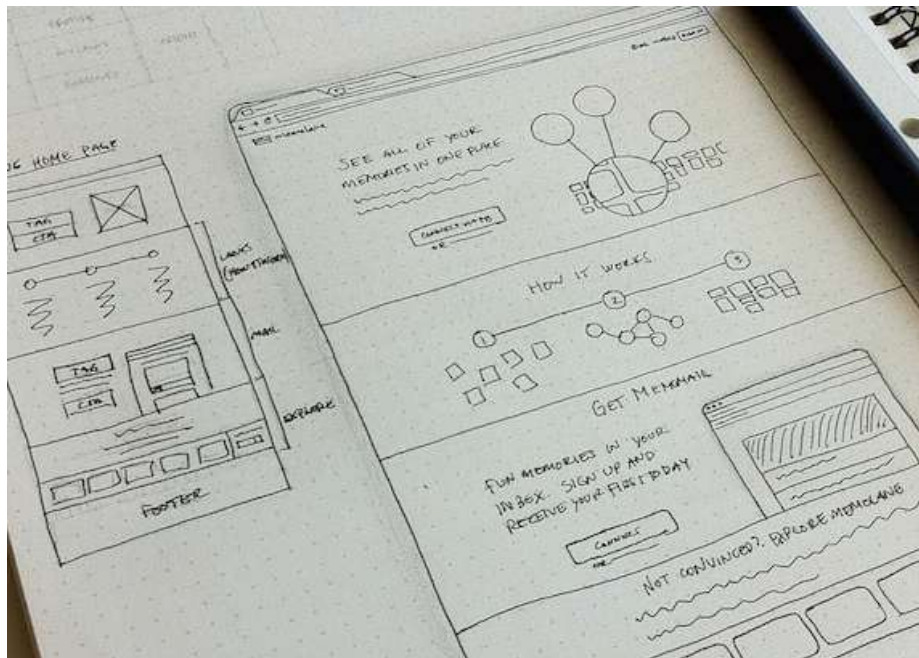 HOME PAGE
TAG
CTA
LANES
MAIL
TAG
CTA
EXPLORE
FOOTER
memolane
SIGN IN
SEE ALL OF YOUR
MEMORIES IN ONE PLACE
CONNECT W/ FB
OR
HOW IT WORKS
1
2
3
GET MEMOMAIL
FUN MEMORIES IN YOUR
INBOX. SIGN UP AND
RECEIVE YOUR FIRST TODAY
CONNECT
OR
NOT CONVINCED? EXPLORE MEMOLANE